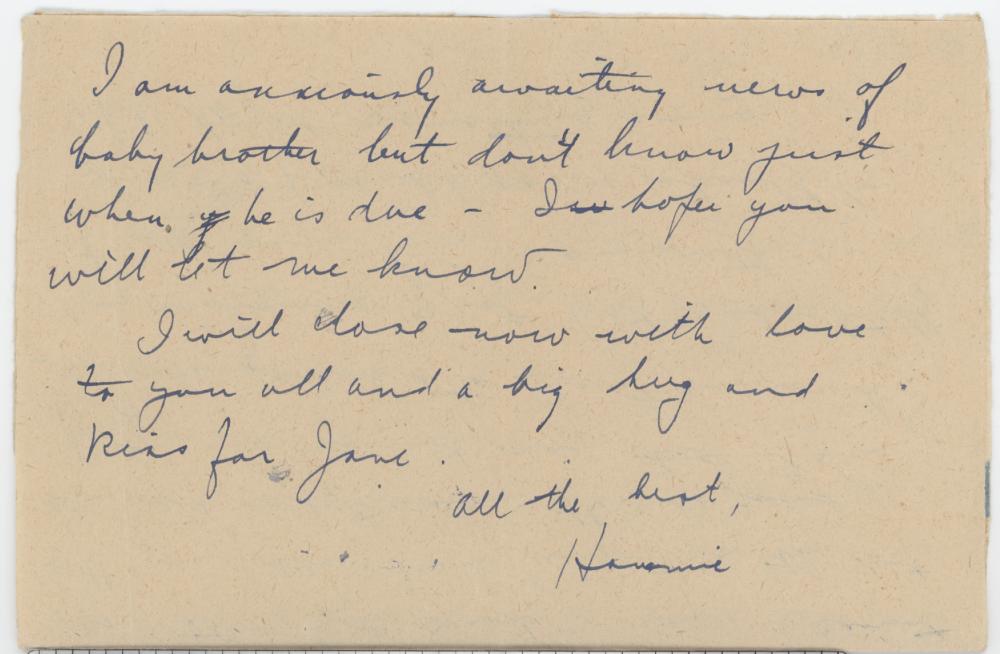 I am anxiously awaiting news of
baby brother but don't know just
when he is due - I hope you
will let me know.
I will close now with love
to you all and a big hug and
kiss for Jane.
all the best,